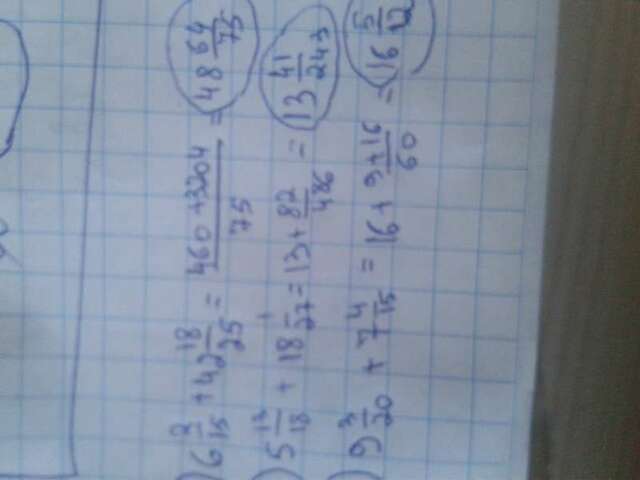 ) 6 2/15 + 42 18/25 = (460 + 3204)/75 = 48 64/75
) 5 13/18 + 18 1/27 = 13 + 82/486 = 13 41/243
) 9 3/20 + 7 4/15 = 16 + (9 + 16)/60 = 16 5/12